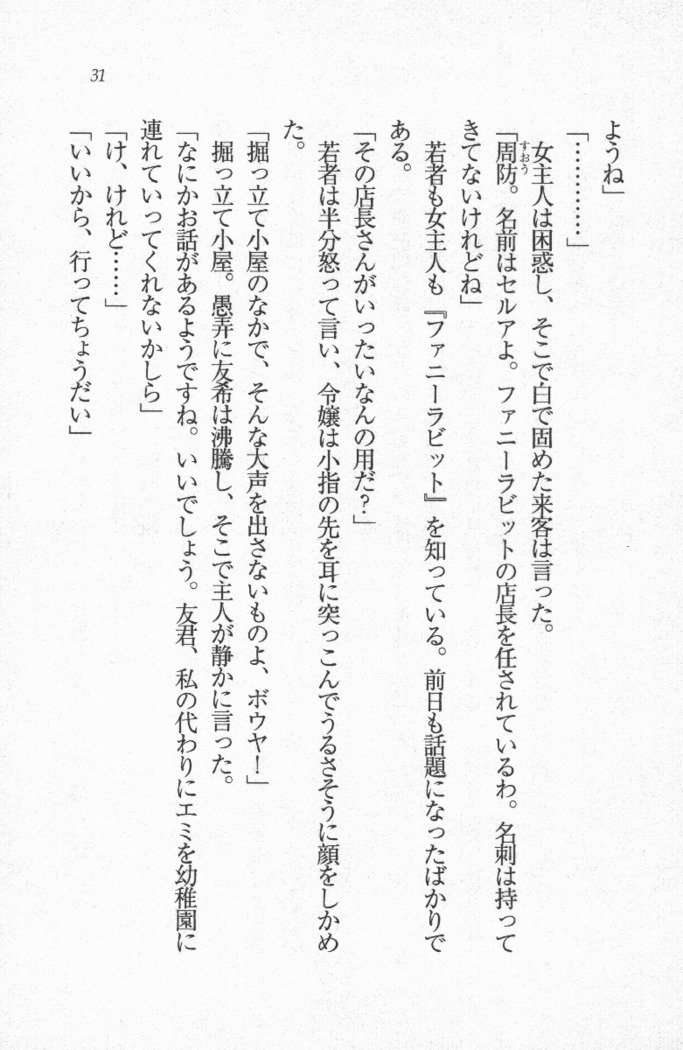 31
ようね」
「…………」
女主人は困惑し、そこで白で固めた来客は言った。
「周防。名前はセルアよ。ファニーラビットの店長を任されているわ。名刺は持って
すおう
きてないけれどね」
若者も女主人も『ファニーラビット』を知っている。前日も話題になったばかりで
ある。
「その店長さんがいったいなんの用だ？」
若者は半分怒って言い、令嬢は小指の先を耳に突っこんでうるさそうに顔をしかめ
た。
「掘っ立て小屋のなかで、そんな大声を出さないものよ、ボウヤ！」
掘っ立て小屋。愚弄に友希は沸騰し、そこで主人が静かに言った。
「なにかお話があるようですね。いいでしょう。友君、私の代わりにエミを幼稚園に
連れていってくれないかしら」
「け、けれど……」
「いいから、行ってちょうだい」